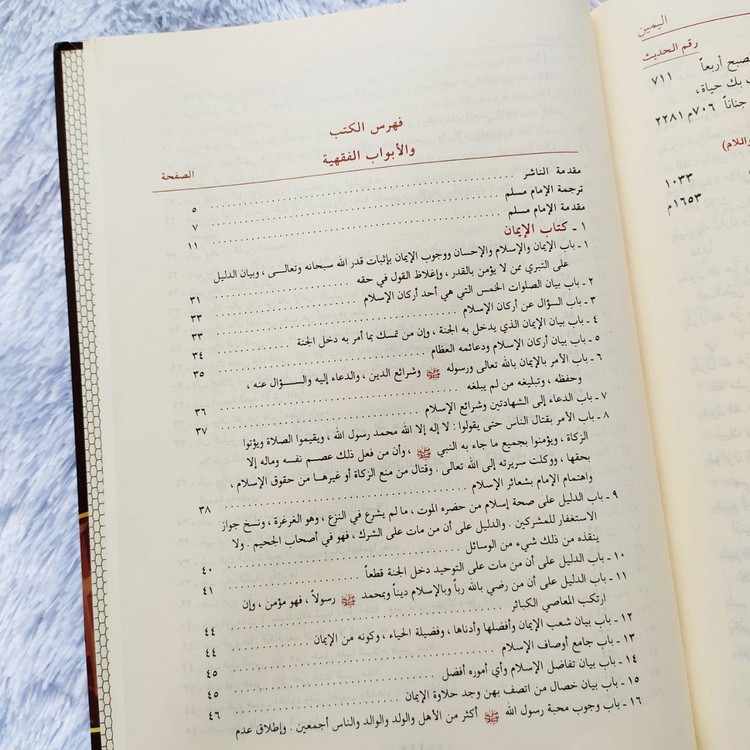 اليمين
رقم الحديث
صبح أربعاً ٧١١
ب بك حياة،
جناناً ٧٠٦م ٢٢٨١
واللام)
١٠٣٣
١٦٥٣م
فهرس الكتب
والأبواب الفقهية
الصفحة
مقدمة الناشر ٥
ترجمة الإمام مسلم ٧
مقدمة الإمام مسلم ١١
١ ـ كتاب الإيمان
١ ـ باب الإيمان والإسلام والإحسان ووجوب الإيمان بإثبات قدر الله سبحانه وتعالى ، وبيان الدليل
على التبري ممن لا يؤمن بالقدر ، وإغلاظ القول في حقه ٣١
٢ ـ باب بيان الصلوات الخمس التي هي أحد أركان الإسلام ٣٣
٣ ـ باب السؤال عن أركان الإسلام ٣٣
٤ ـ باب بيان الإيمان الذي يدخل به الجنة ، وإن من تمسك بما أمر به دخل الجنة ٣٤
٥ ـ باب بيان أركان الإسلام ودعائمه العظام ٣٥
٦ ـ باب الأمر بالإيمان بالله تعالى ورسوله ﷺ وشرائع الدين ، والدعاء إليه والسؤال عنه ،
وحفظه ، وتبليغه من لم يبلغه ٣٦
٧ ـ باب الدعاء إلى الشهادتين وشرائع الإسلام ٣٧
٨ ـ باب الأمر بقتال الناس حتى يقولوا : لا إله إلا الله محمد رسول الله ، ويقيموا الصلاة ويؤتوا
الزكاة ، ويؤمنوا بجميع ما جاء به النبي ﷺ ، وأن من فعل ذلك عصم نفسه وماله إلا
بحقها ، ووكلت سريرته إلى الله تعالى . وقتال من منع الزكاة أو غيرها من حقوق الإسلام ،
واهتمام الإمام بشعائر الإسلام ٣٨
٩ ـ باب الدليل على صحة إسلام من حضره الموت ، ما لم يشرع في النزع ، وهو الغرغرة ، ونسخ جواز
الاستغفار للمشركين . والدليل على أن من مات على الشرك ، فهو في أصحاب الجحيم . ولا
ينقذه من ذلك شيء من الوسائل ٤٠
١٠ ـ باب الدليل على أن من مات على التوحيد دخل الجنة قطعاً ٤١
١١ ـ باب الدليل على أن من رضي بالله رباً وبالإسلام ديناً وبمحمد ﷺ رسولاً ، فهو مؤمن ، وإن
ارتكب المعاصي الكبائر ٤٤
١٢ ـ باب بيان شعب الإيمان وأفضلها وأدناها ، وفضيلة الحياء ، وكونه من الإيمان ٤٤
١٣ ـ باب جامع أوصاف الإسلام ٤٥
١٤ ـ باب بيان تفاضل الإسلام وأي أموره أفضل ٤٥
١٥ ـ باب بيان خصال من اتصف بهن وجد حلاوة الإيمان ٤٦
١٦ ـ باب وجوب محبة رسول الله ﷺ أكثر من الأهل والولد والوالد والناس أجمعين . وإطلاق عدم